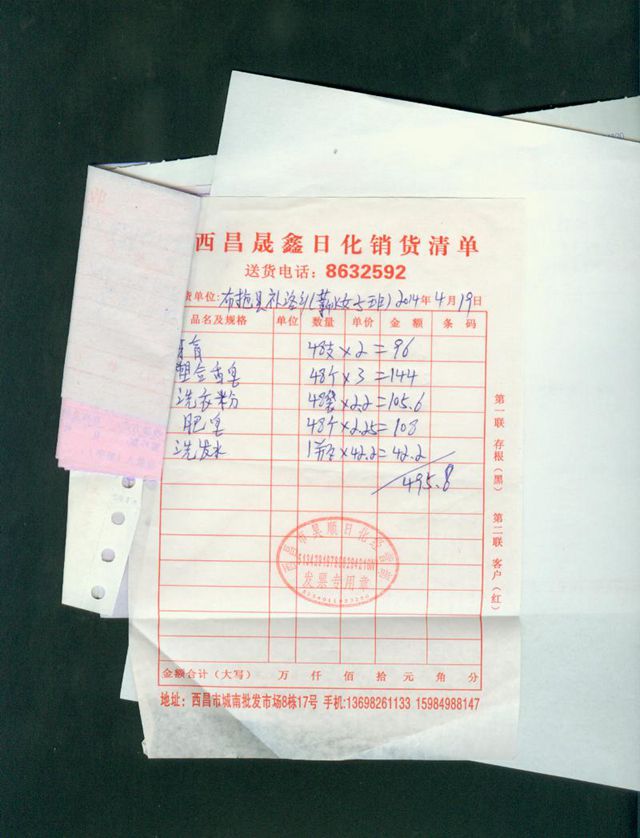 西昌晟鑫日化销货清单
送货电话：8632592
货单位：布拖县补洛乡(女子班) 2014年4月19日
品名及规格 单位 数量 单价 金额 条码
膏 48支×2=96
塑盒香皂 48个×3=144
洗衣粉 48袋×2.2=105.6
肥皂 48个×2.25=108
洗发水 1×42.2=42.2
495.8
第一联 存根（黑） 第二联 客户（红）
发票专用章
金额合计（大写） 万 仟 佰 拾 元 角 分
地址：西昌市城南批发市场8栋17号 手机:13698261133 15984988147